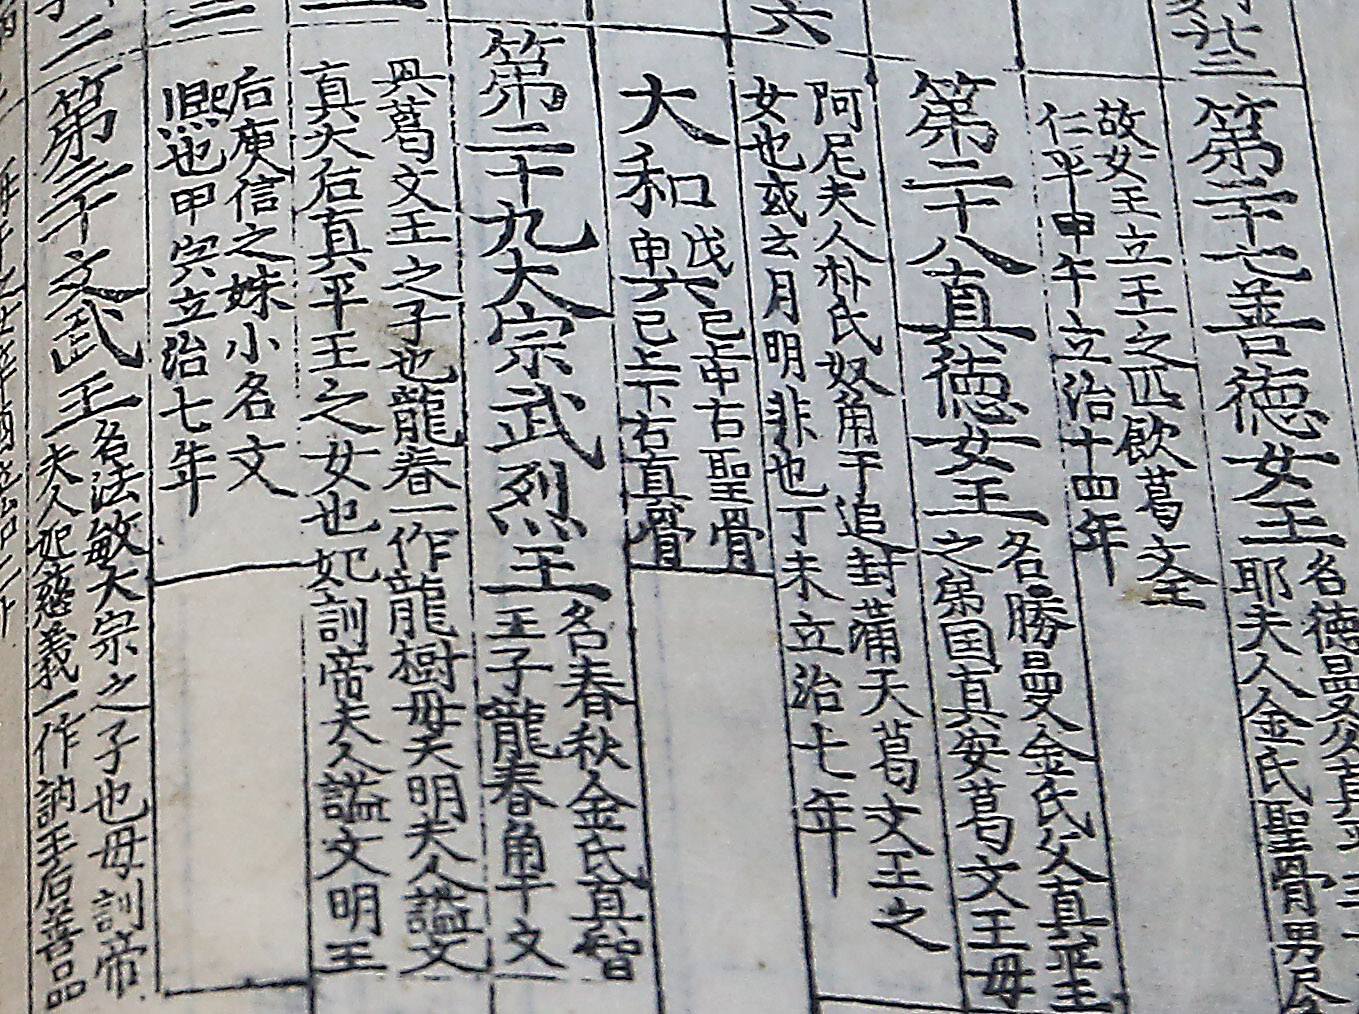 第二十七善德女王
名德曼父真平王
耶夫人金氏聖骨男尽
故女王立王之匹飮葛文王
仁平甲午立治十四年
第二十八真德女王
名勝曼金氏父真平王
之弟国真安葛文王母
阿尼夫人朴氏奴角干追封蒲天葛文王之
女也或云月明非也丁未立治七年
大和
戊申
六
己上中古聖骨
己上下古真骨
第二十九大宗武烈王
名春秋金氏真智
王子龍春角干文
興葛文王之子也龍春一作龍樹母天明夫人諡文
真太后真平王之女也妃訓帝夫人諡文明王
后庾信之妹小名文
熙也甲寅立治七年
第三十文武王
名法敏大宗之子也母訓帝
夫人妃慈義一作訥王后善品
六
二